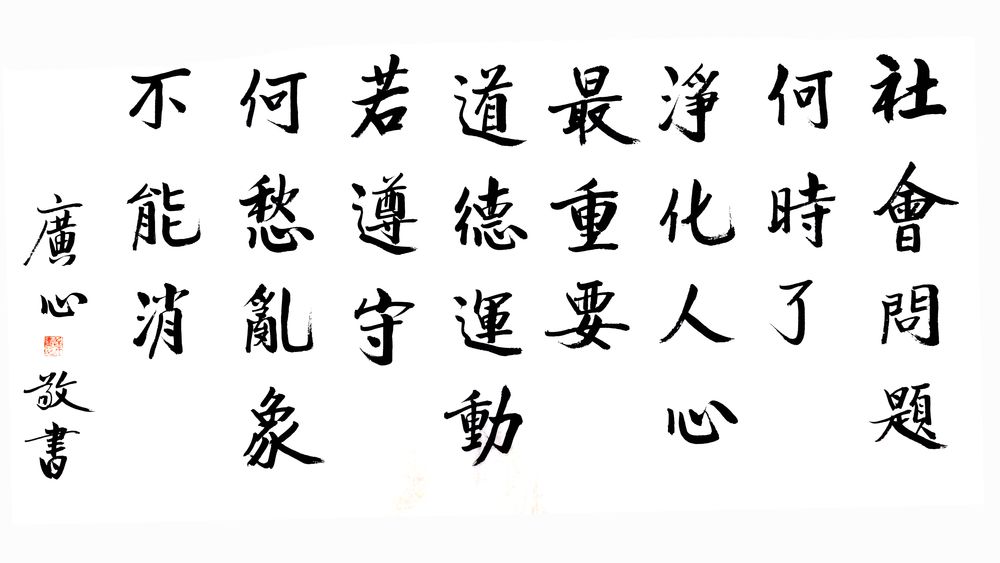 社會問題
何時了
淨化人心
最重要
道德運動
若遵守
何愁亂象
不能消
廣心敬書